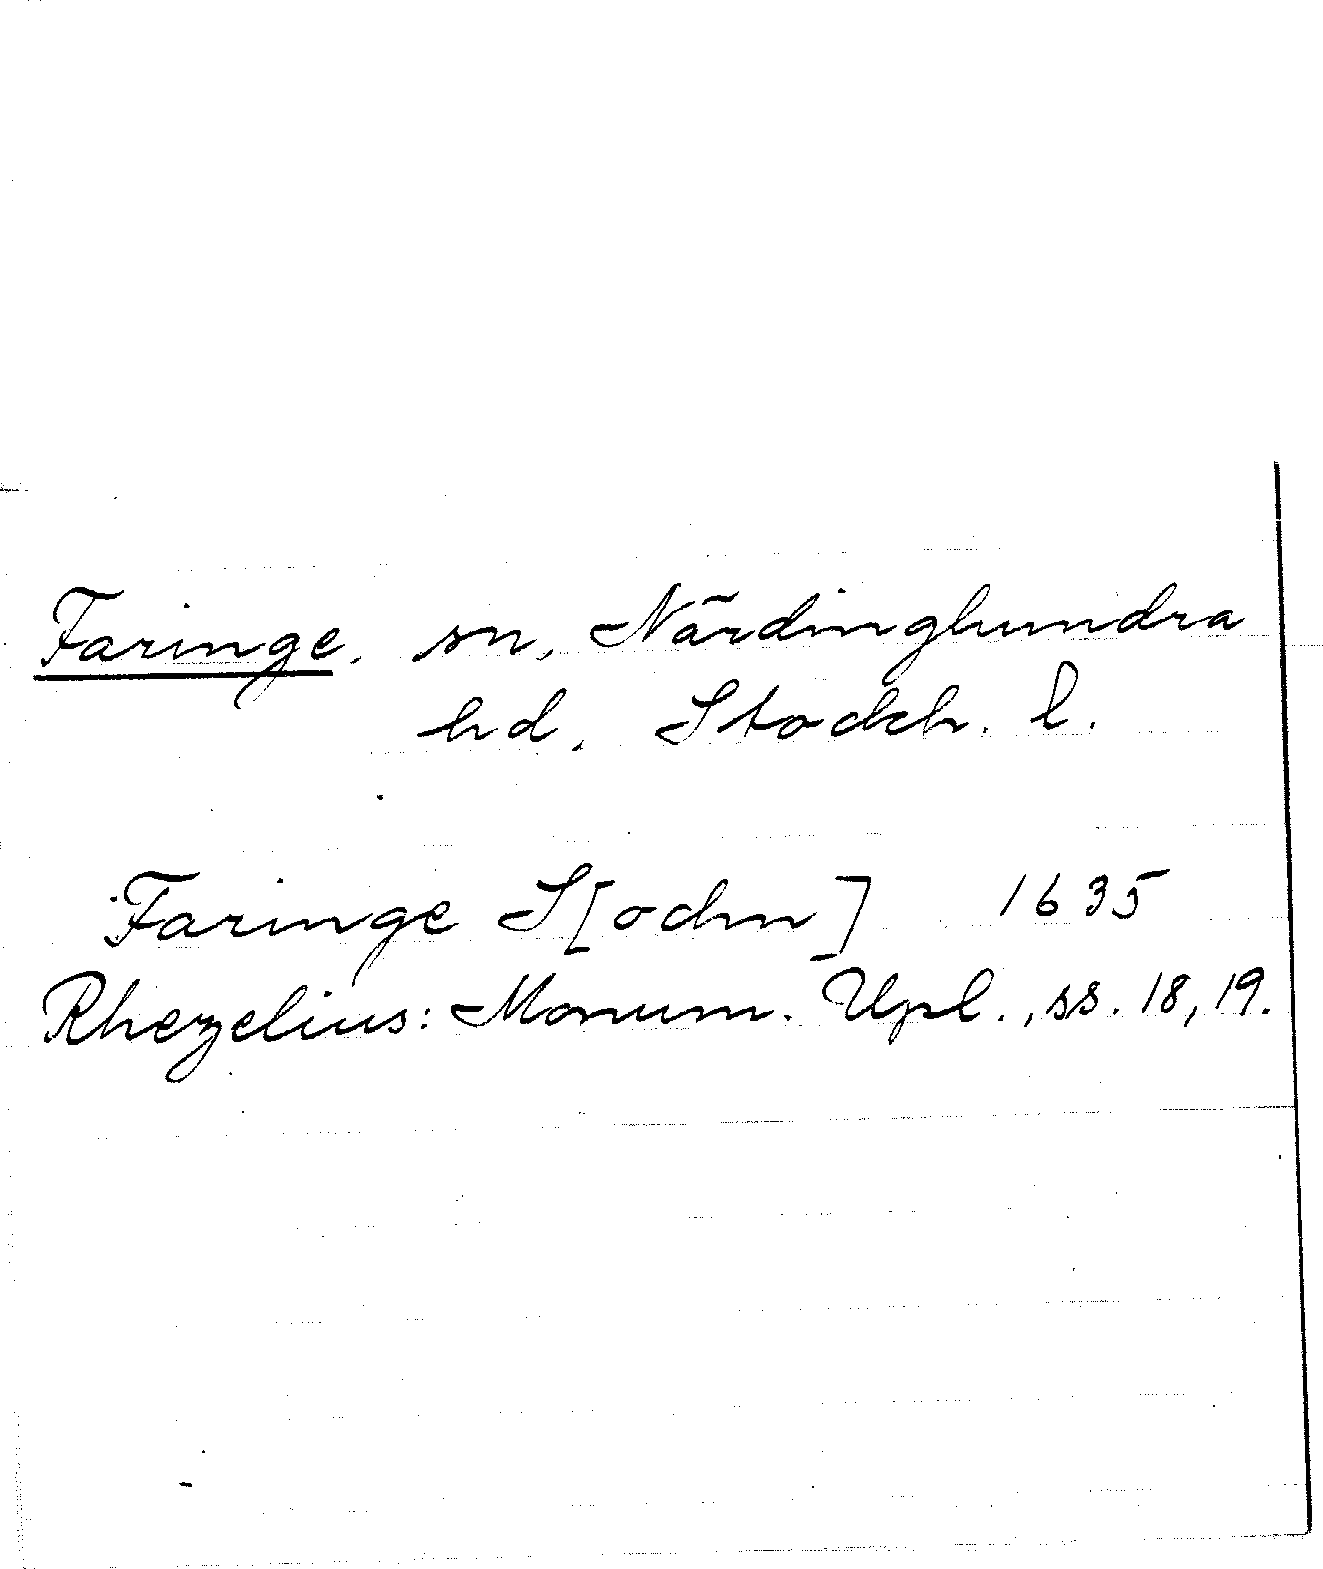 Faringe, sn, Närdinghundra
hd, Stockh. l.
Faringe S[ochn] 1635
Rhezelius: Monum. Upl., ss. 18, 19.